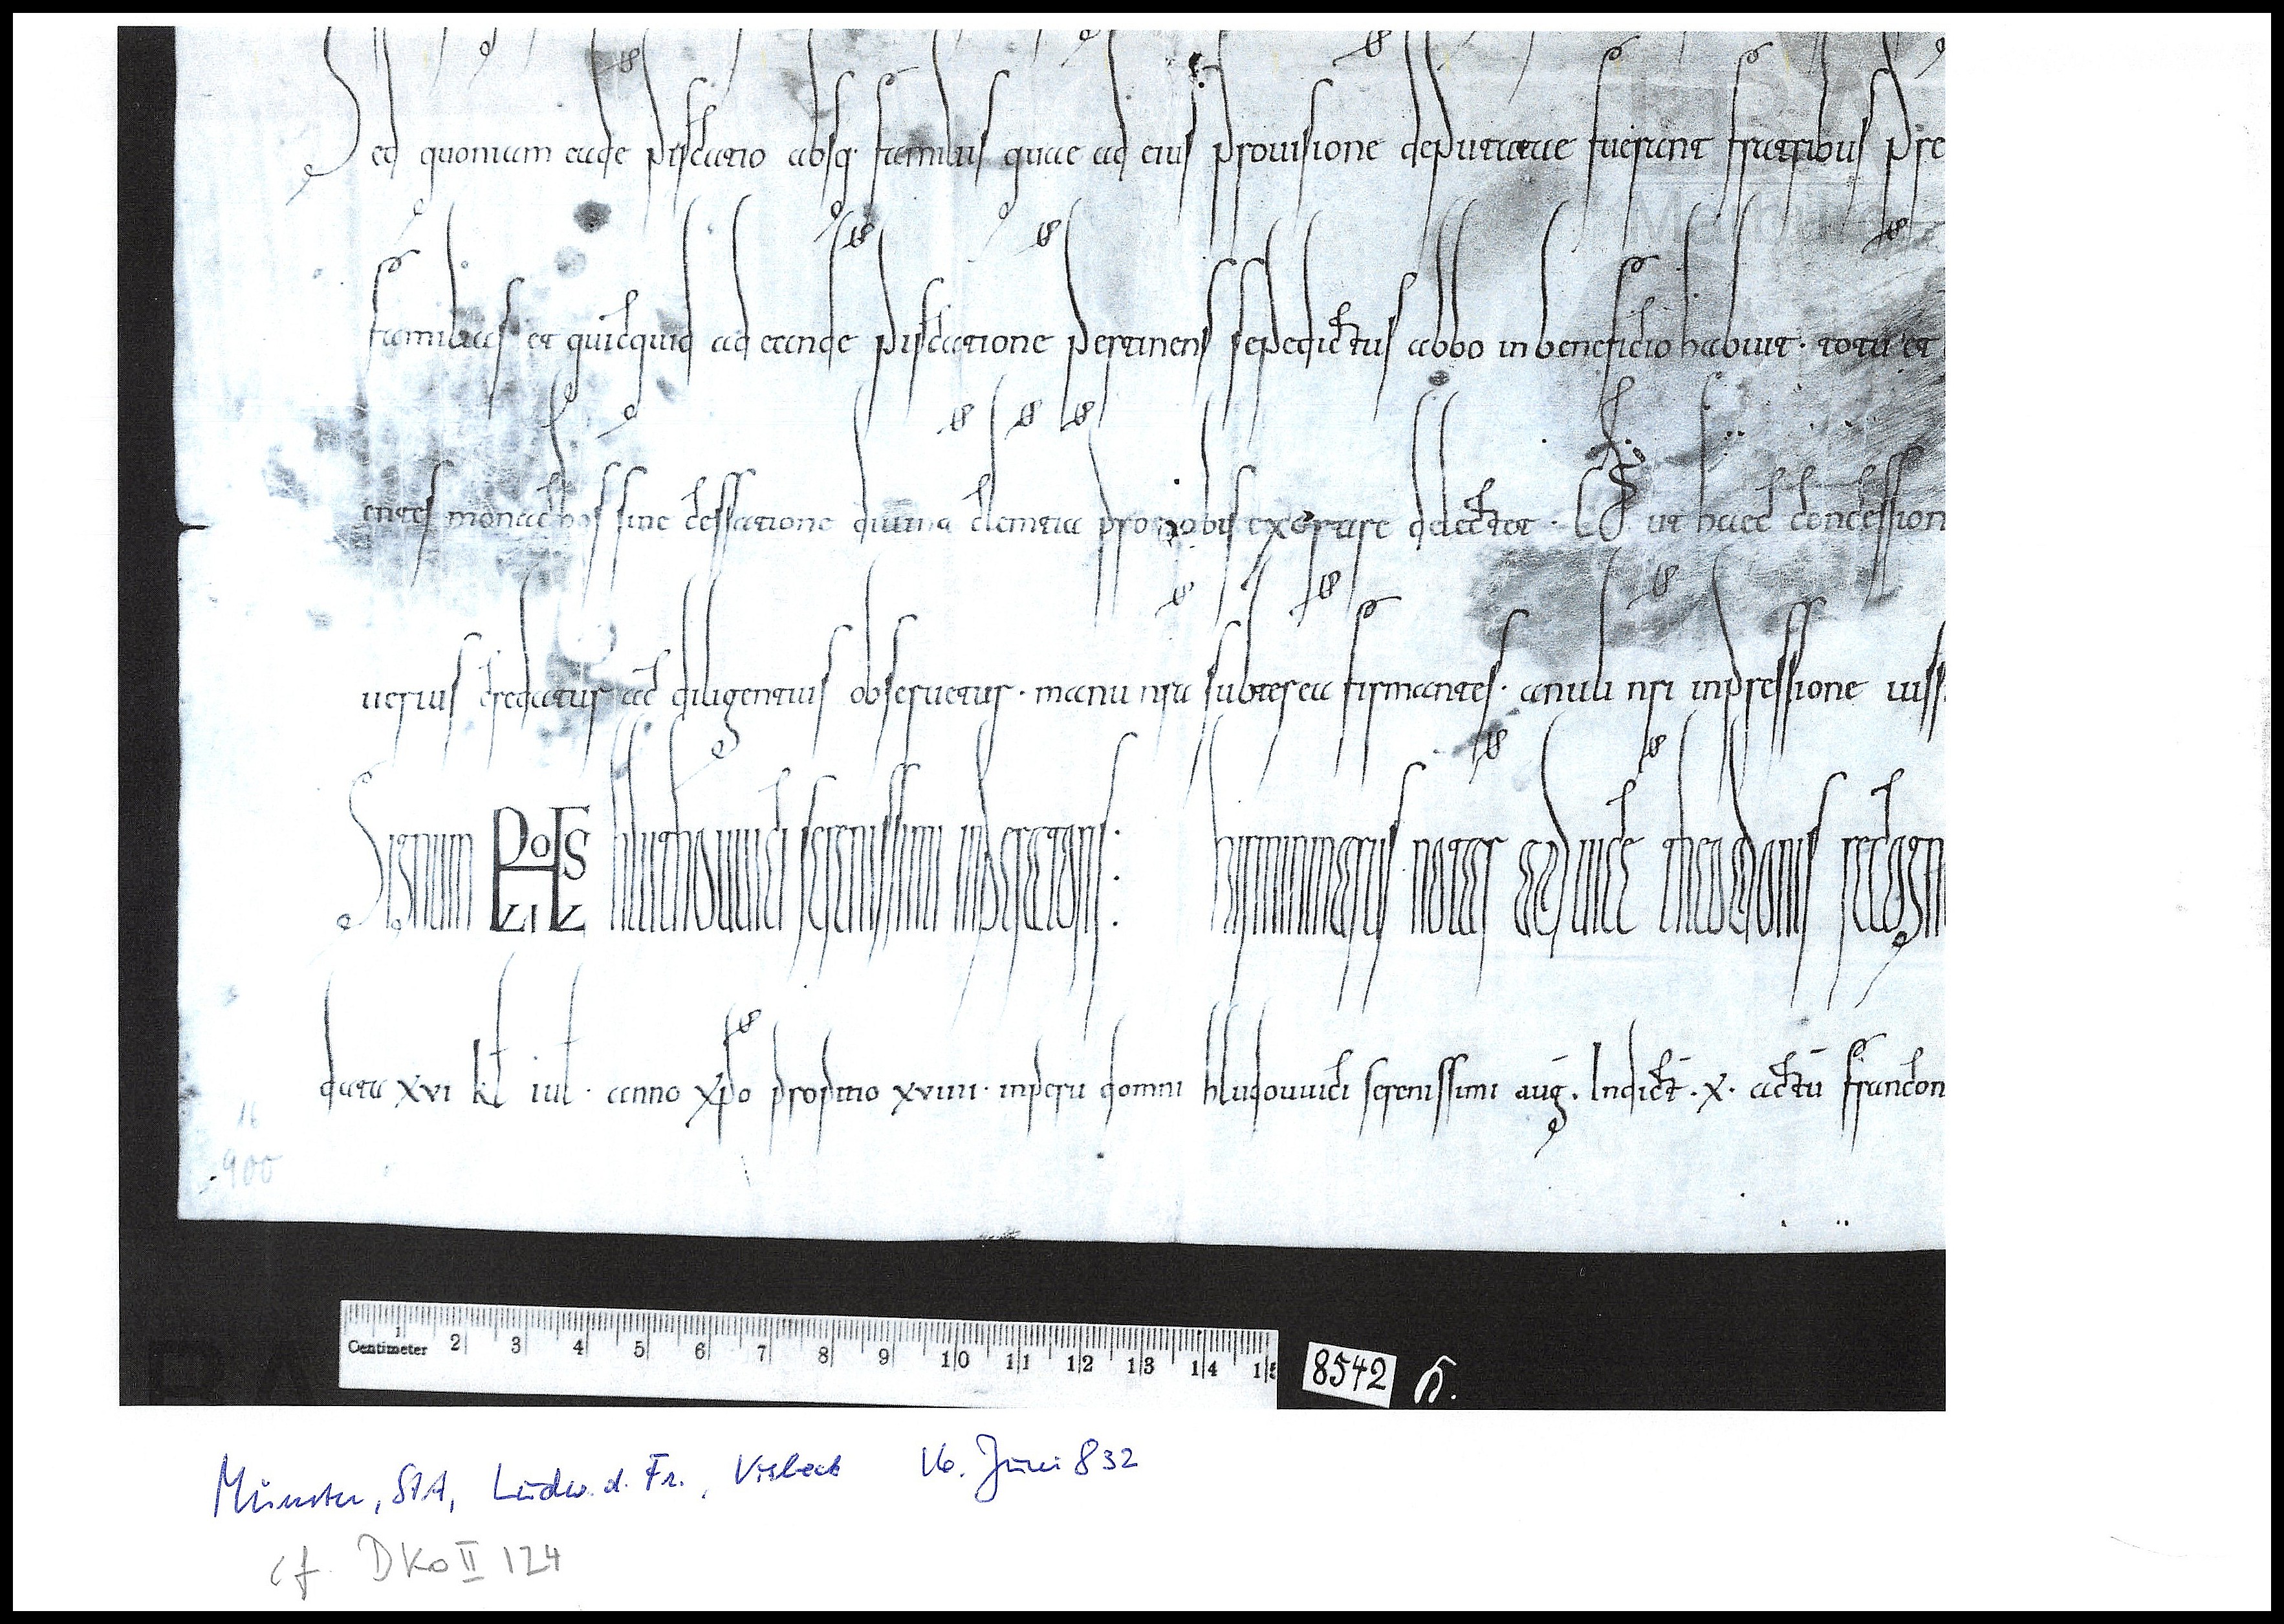 Sed quoniam eade piscatio absq. familiis quae ad eius prouisione deputatae fuerant fratribus pre
familias et quicquid ad eande piscatione pertinens sepedictus abbo in beneficio habuit. totu et
entes monachos sine cessatione diuina clementia pro nobis exorare delectet. Et ut haec concession
uerius credatur ac diligentius obseruetur. manu nra subter ea firmantes. anuli nri inpressione iuss
Signum hludouuici serenissimi inperatoris: hirminmaris notar aduice theodonis recogn
data xvi kl iul. anno xpo propitio xviiii. inperii domni hludouuici serenissimi aug. Indict. x. actu francon
16
900
Centimeter 1 2 3 4 5 6 7 8 9 10 11 12 13 14 15
8542
Münster, StA, Ludw. d. Fr., Visbeck 16. Juni 832
cf. DKo II 124